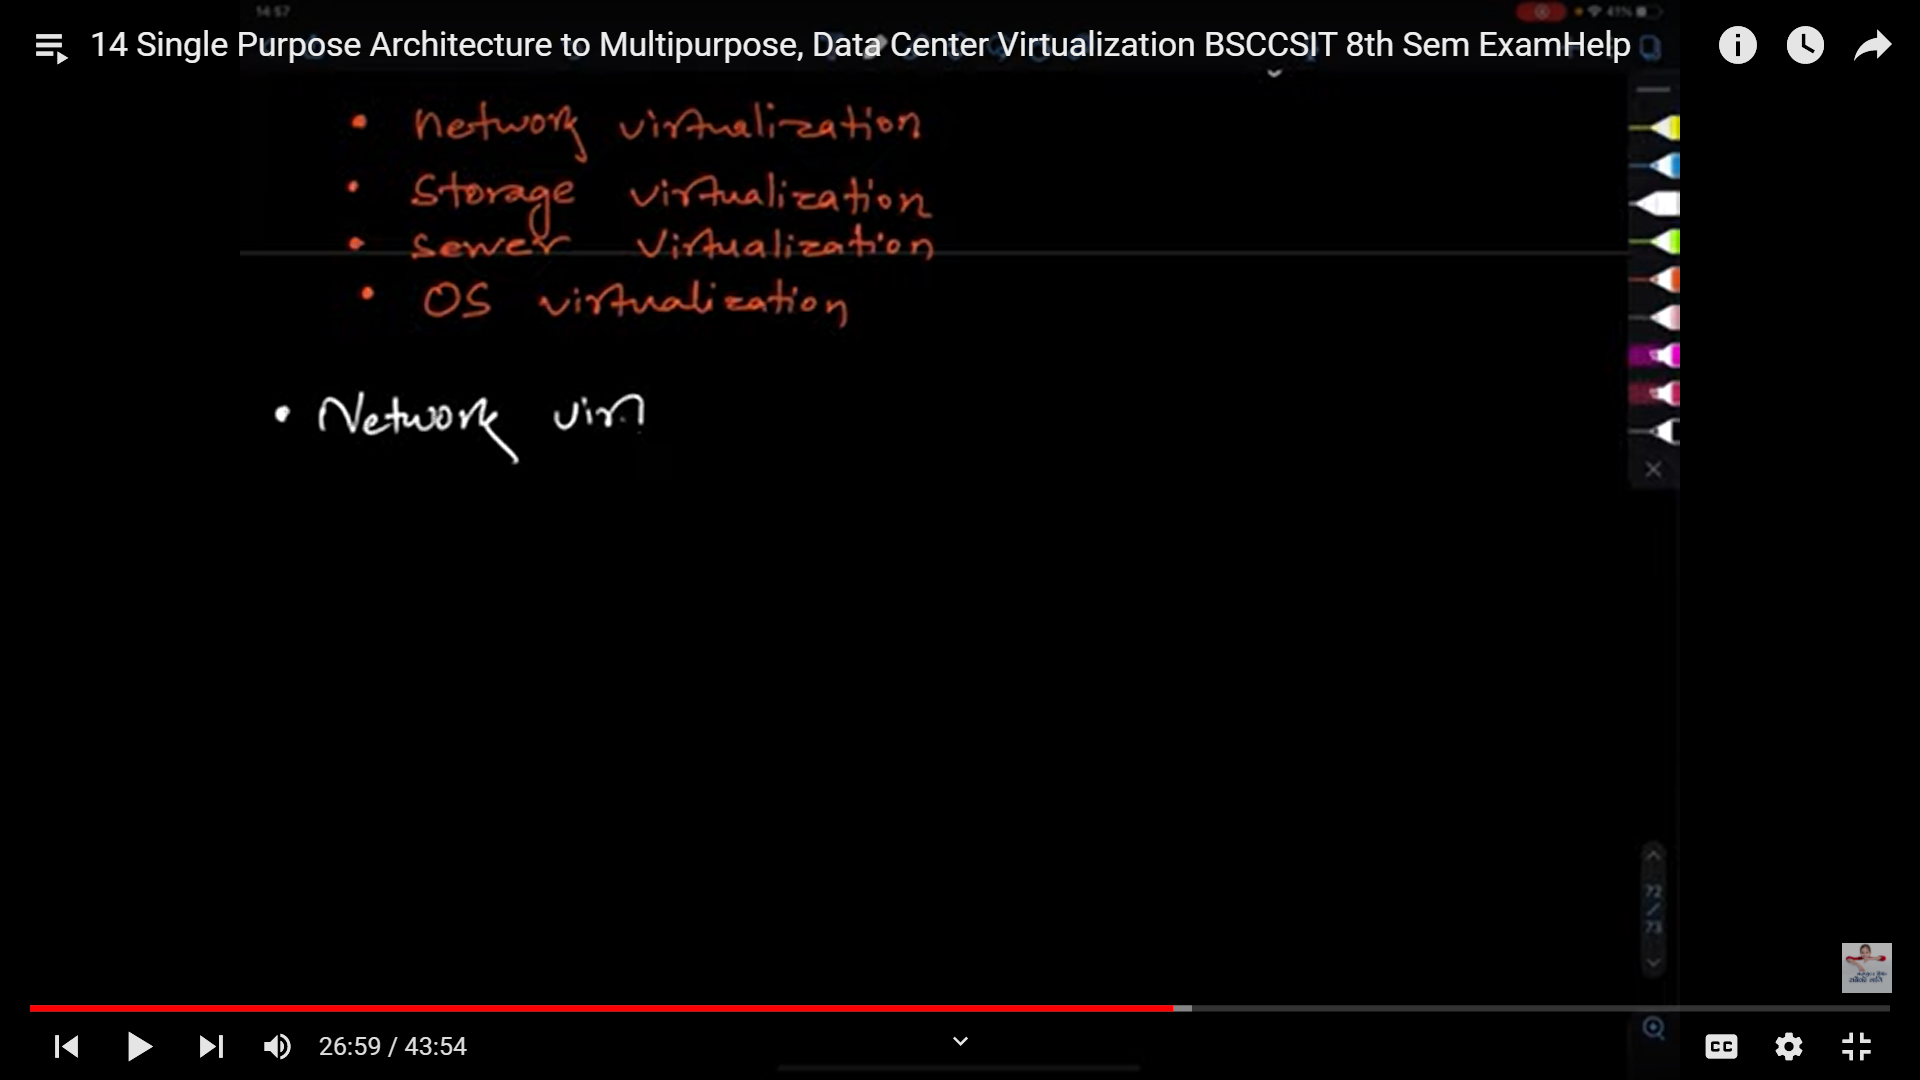 14:57
41%
14 Single Purpose Architecture to Multipurpose, Data Center Virtualization BSCCSIT 8th Sem ExamHelp
• Network virtualization
• Storage virtualization
• Server Virtualization
• OS virtualization
• Network vir
72
/
73
26:59 / 43:54
CC